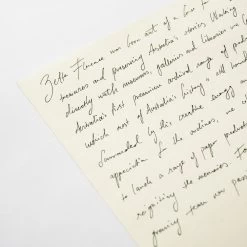 Zetta Florence was born out of a love to
treasures and preserving Australia's stories. Working
directly with museums, galleries and libraries we
Australia's first premium archival range of
which most of Australia's history will
Surrounded by his creative
appreciation of the archives, we
to launch a range of paper
re-igniting the memories. Fo
growing from